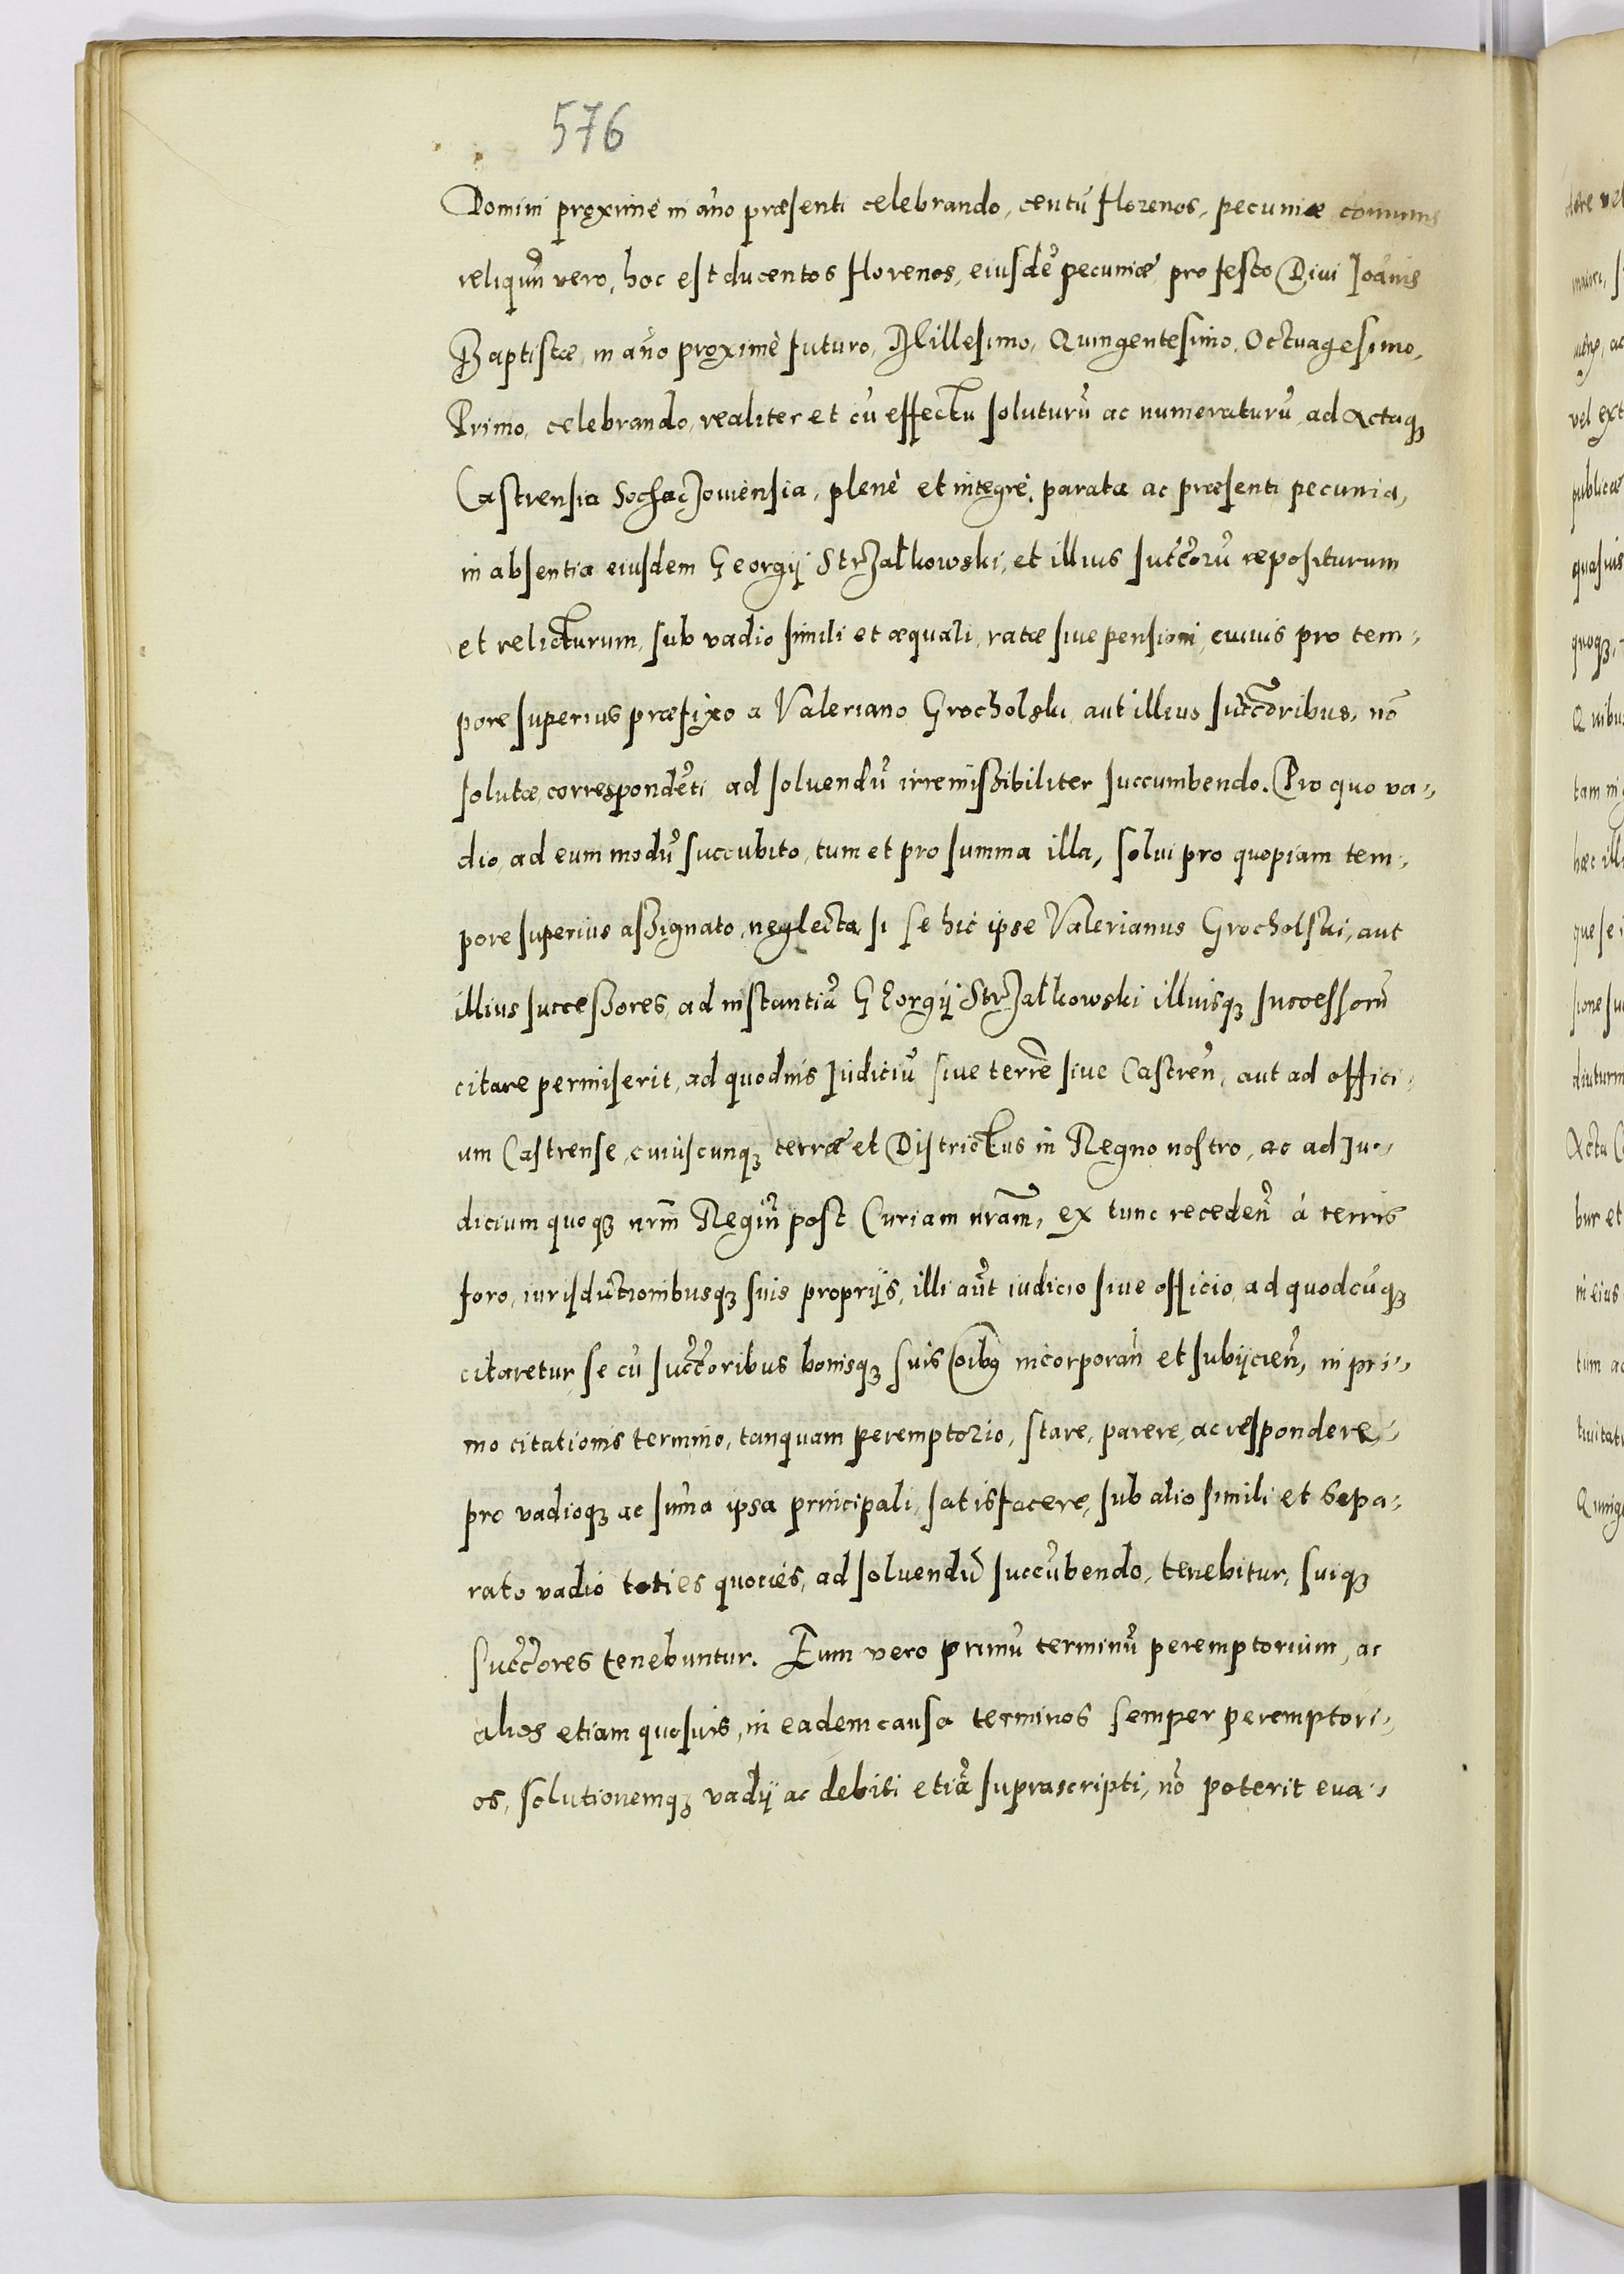 576
Domini proxime in año præsenti celebrando, centũ florenos, pecuniæ comunis
reliquũ vero, hoc est ducentos florenos, eiusdẽ pecuniæ pro festo Diui Ioãnis
Baptistæ, in año proximè futuro, Millesimo, Quingentesimo, Octuagesimo,
Primo, celebrando, realiter et cũ effectu soluturũ ac numeraturũ, ad Actaqȝ
Castrensia Sochaczouiensia, plenè et integrè, parata ac præsenti pecunia,
in absentia eiusdem Georgij Strzalkowski, et illius succ̃orũ repositurum
et relicturum, sub vadio simili et æquali, ratæ siue pensioni, cuiuis pro tem-
pore superius præfixo a Valeriano Grocholski aut illius succ̃oribus, nõ
solutæ, correspondẽti ad soluendũ irremissibiliter succumbendo. Pro quo va-
dio, ad eum modũ succubito, tum et pro summa illa, solui pro quopiam tem-
pore superius assignato, neglecta, si se hic ipse Valerianus Grocholski, aut
illius successores, ad instantiã Georgij Strzalkowski illiusqȝ successorũ
citare permiserit, ad quoduis Iudiciũ siue terrẽ siue Castreñ, aut ad offici-
um Castrense, cuiuscunqȝ terræ et Districtus in Regno nostro, ac ad Iu-
dicium quoqȝ nrm̃ Regiũ post Curiam nrãm, ex tunc recedeñ à terris
foro, iurisdictionibusqȝ suis proprijs, illi aũt iudicio siue officio, ad quodcũqȝ
citaretur, se cũ succ̃oribus bonisqȝ suis oĩbꝯ incorporañ et subijcieñ, in pri-
mo citationis termino, tanquam peremptorio, stare, parere, ac respondere,
pro vadioqȝ ac suma ipsa principali, satisfacere, sub alio simili et sepa-
rato vadio toties quociẽs, ad soluendũ succũbendo, tenebitur, suiqȝ
succ̃ores tenebuntur. Eum vero primũ terminũ peremptorium, ac
alios etiam quosuis, in eadem causa terminos semper peremptori-
os, solutionemqȝ vadij ac debiti etiã suprascripti, nõ poterit eua-